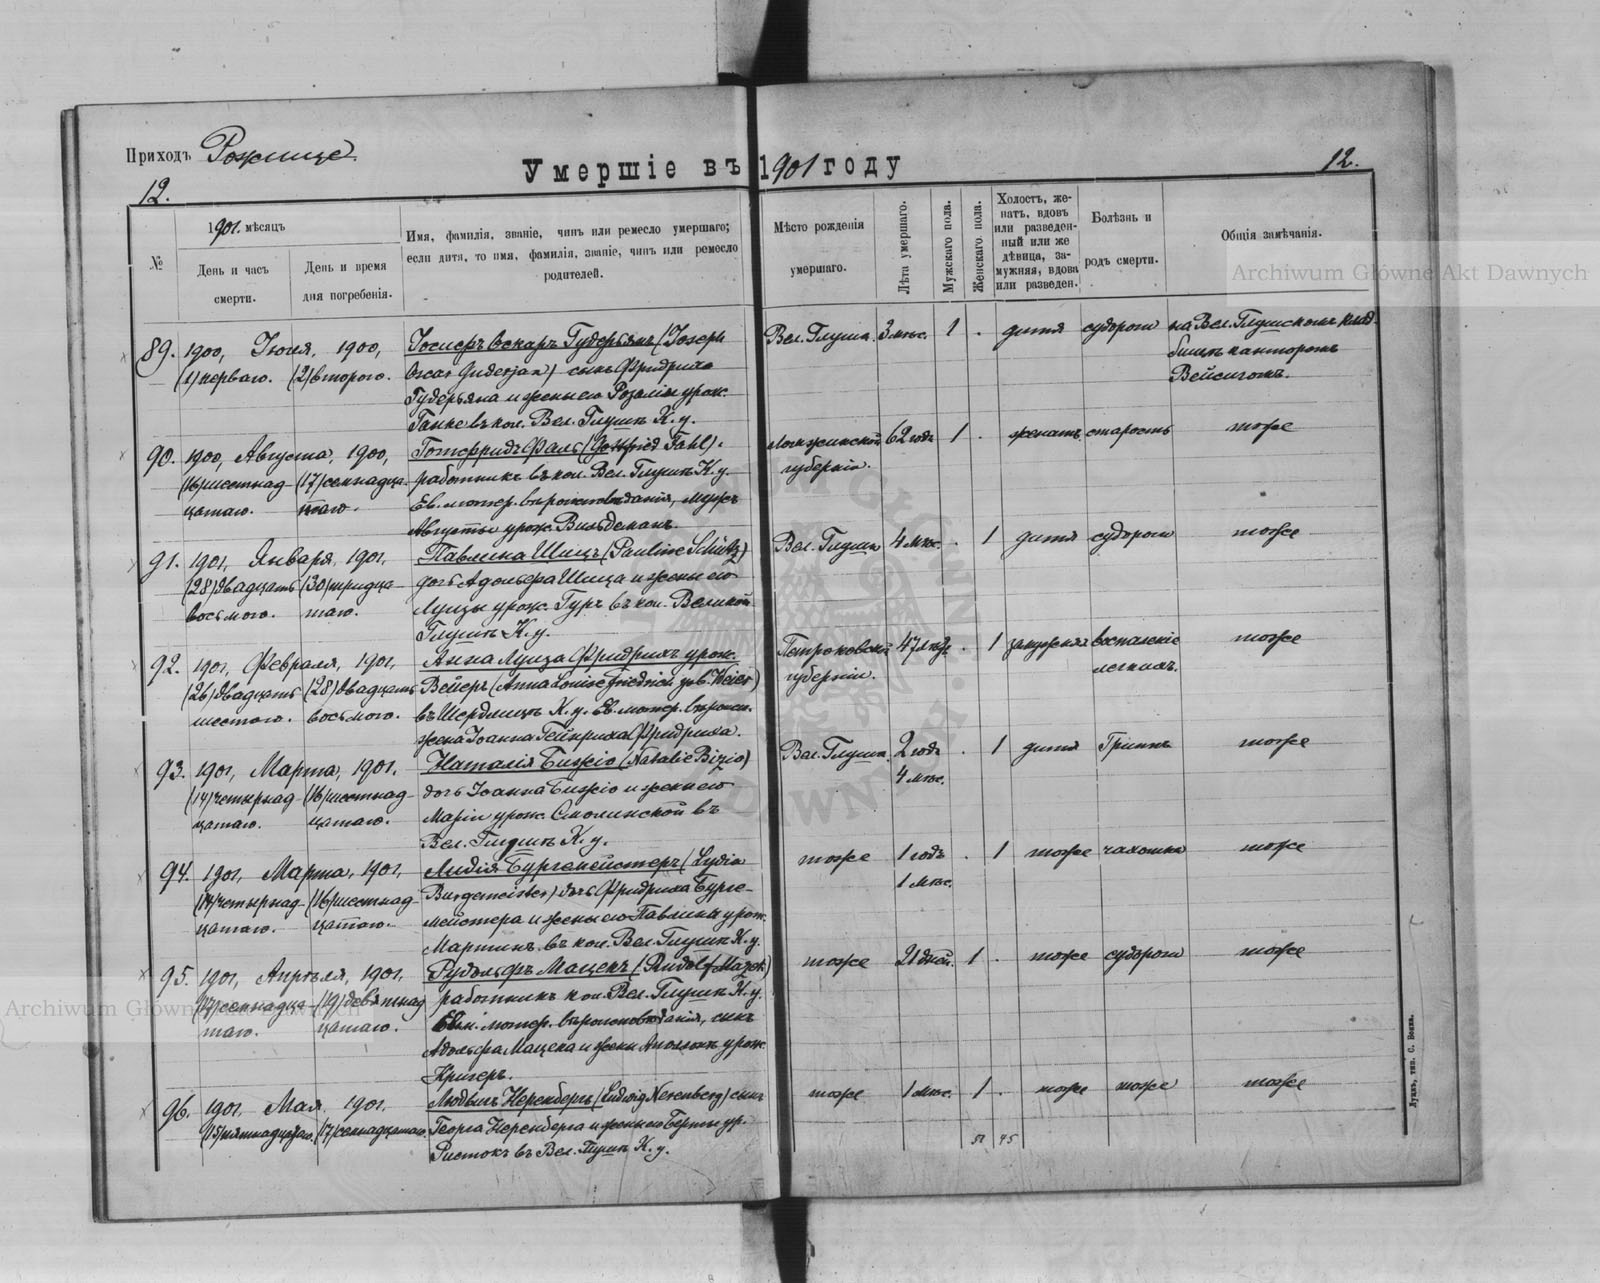 Приходъ Рожище
Умершіе въ 1901 году
12.
12.
№
1901. мѣсяцъ
День и часъ смерти.
День и время дня погребенія.
Имя, фамилія, званіе, чинъ или ремесло умершаго;
если дитя, то имя, фамилія, званіе, чинъ или ремесло
родителей.
Мѣсто рожденія
умершаго.
Лѣта умершаго.
Мужскаго пола.
Женскаго пола.
Холостъ, же-
натъ, вдовъ
или разведен-
ный или же
дѣвица, за-
мужняя, вдова
или разведен.
Болѣзнь и
родъ смерти.
Общія замѣчанія.
89. 1900, Іюля, 1900,
(1) перваго. (2) второго.
Іосифъ Оскаръ Гудерьянъ (Joseph
Oscar Guderjan) сынъ Фридриха
Гудерьяна и жены его Розаліи урож.
Ганке въ кол. Вел. Глушѣ К. у.
Вел. Глуша 3 мѣс. 1 . дитя судороги на Вел. Глушскомъ клад-
бищѣ канторомъ
90. 1900, Августа, 1900,
(16) шестнад- (17) семнадца-
цатаго. таго.
Готфридъ Фаль (Gottfried Fahl).
работникъ въ кол. Вел. Глушѣ К. у.
Ев. лютер. вѣроисповѣданія, мужъ
Августы урож. Вильдеманъ.
Ломжинской 62 годъ 1 . женатъ старость тоже
губерніи.
91. 1901, Января, 1901,
(28) двадцать (30) тридца-
восьмого. таго.
Павлина Шицъ (Pauline Schütz)
дочь Адольфа Шица и жены его
Луизы урож. Гуръ въ кол. Великой
Глушѣ К. у.
Вел. Глуша 4 мѣс. . 1 дитя судороги тоже
92. 1901, Февраля, 1901,
(26) двадцать (28) двадцать
шестого. восьмого.
Анна Луиза Фридрихъ урож.
Вейеръ (Anna Louise Friedrich geb. Weier)
К. у. Ев. лютер. вѣроисп.
жена Іоанна Гейнриха Фридриха.
Петроковской 47 лѣтъ . 1 замужняя воспаленіе тоже
губерніи. легкихъ.
93. 1901, Марта, 1901.
(14) четырнад- (16) шестнад-
цатаго. цатаго.
Наталія Бижіо (Natalie Bizio)
дочь Іоанна Бижіо и жены его
Маріи урож. Смолинской въ
Вел. Глушѣ К. у.
Вел. Глуша 2 годъ . 1 дитя Гриппъ тоже
4 мѣс.
94. 1901, Марта, 1901,
(14) четырнад- (16) шестнад-
цатаго. цатаго.
Лидія Бургемейстеръ (Lydia
Burgemeister) дочь Фридриха Бурге-
мейстера и жены его Павлины урож.
Мартинъ въ кол. Вел. Глушѣ К. у.
тоже 1 годъ . 1 тоже чахотка тоже
1 мѣс.
95. 1901, Апрѣля, 1901.
(17) семнадца- (19) девятнад-
таго. цатаго.
Рудольфъ Мацекъ (Rudolf Mazek)
работникъ кол. Вел. Глушѣ К. у.
лютер. вѣроисповѣданія, сынъ
Адольфа Мацека и жены урож.
Кригеръ.
тоже 21 дней. 1 . тоже судороги тоже
96. 1901, Мая, 1901.
(15) пятнадцатаго. (17) семнадцатаго.
Людвигъ Неренбергъ (Ludwig Nerenberg) сынъ
Георга Неренберга и жены его Берты ур.
Ристокъ въ Вел. Глушѣ К. у.
тоже 1 мѣс. 1 . тоже тоже тоже
51 45
Луцкъ, тип. С. Бокка.
Archiwum Główne Akt Dawnych
Archiwum Główne Akt Dawnych